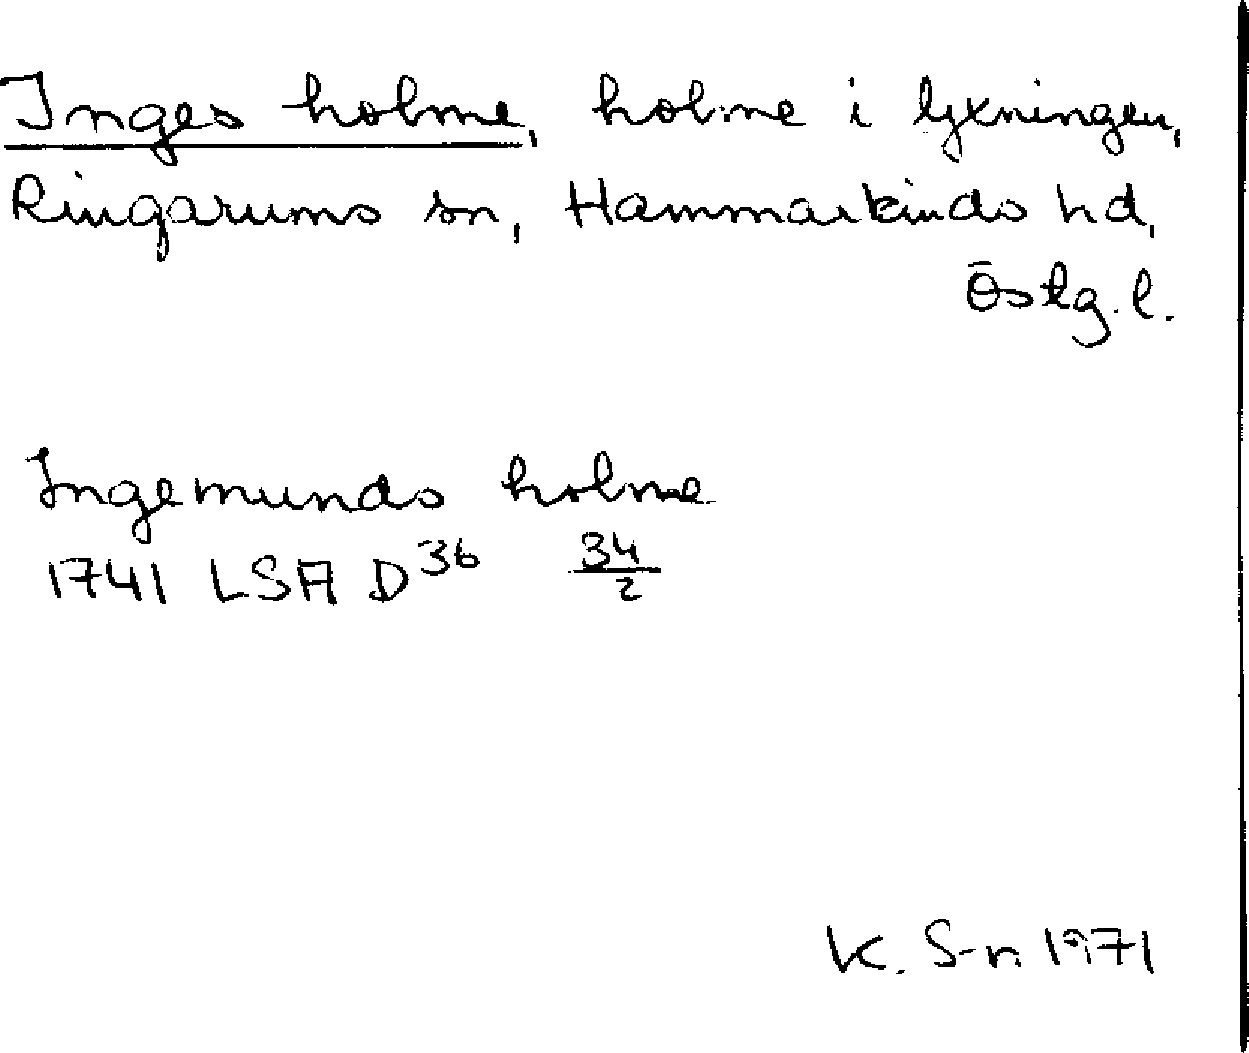 Inges holme, holme i lyxningen,
Ringarums sn, Hammarkinds hd,
Östg. l.
Ingemunds holme
1741 LSA D³⁶ 34/2
K. S-n 1971